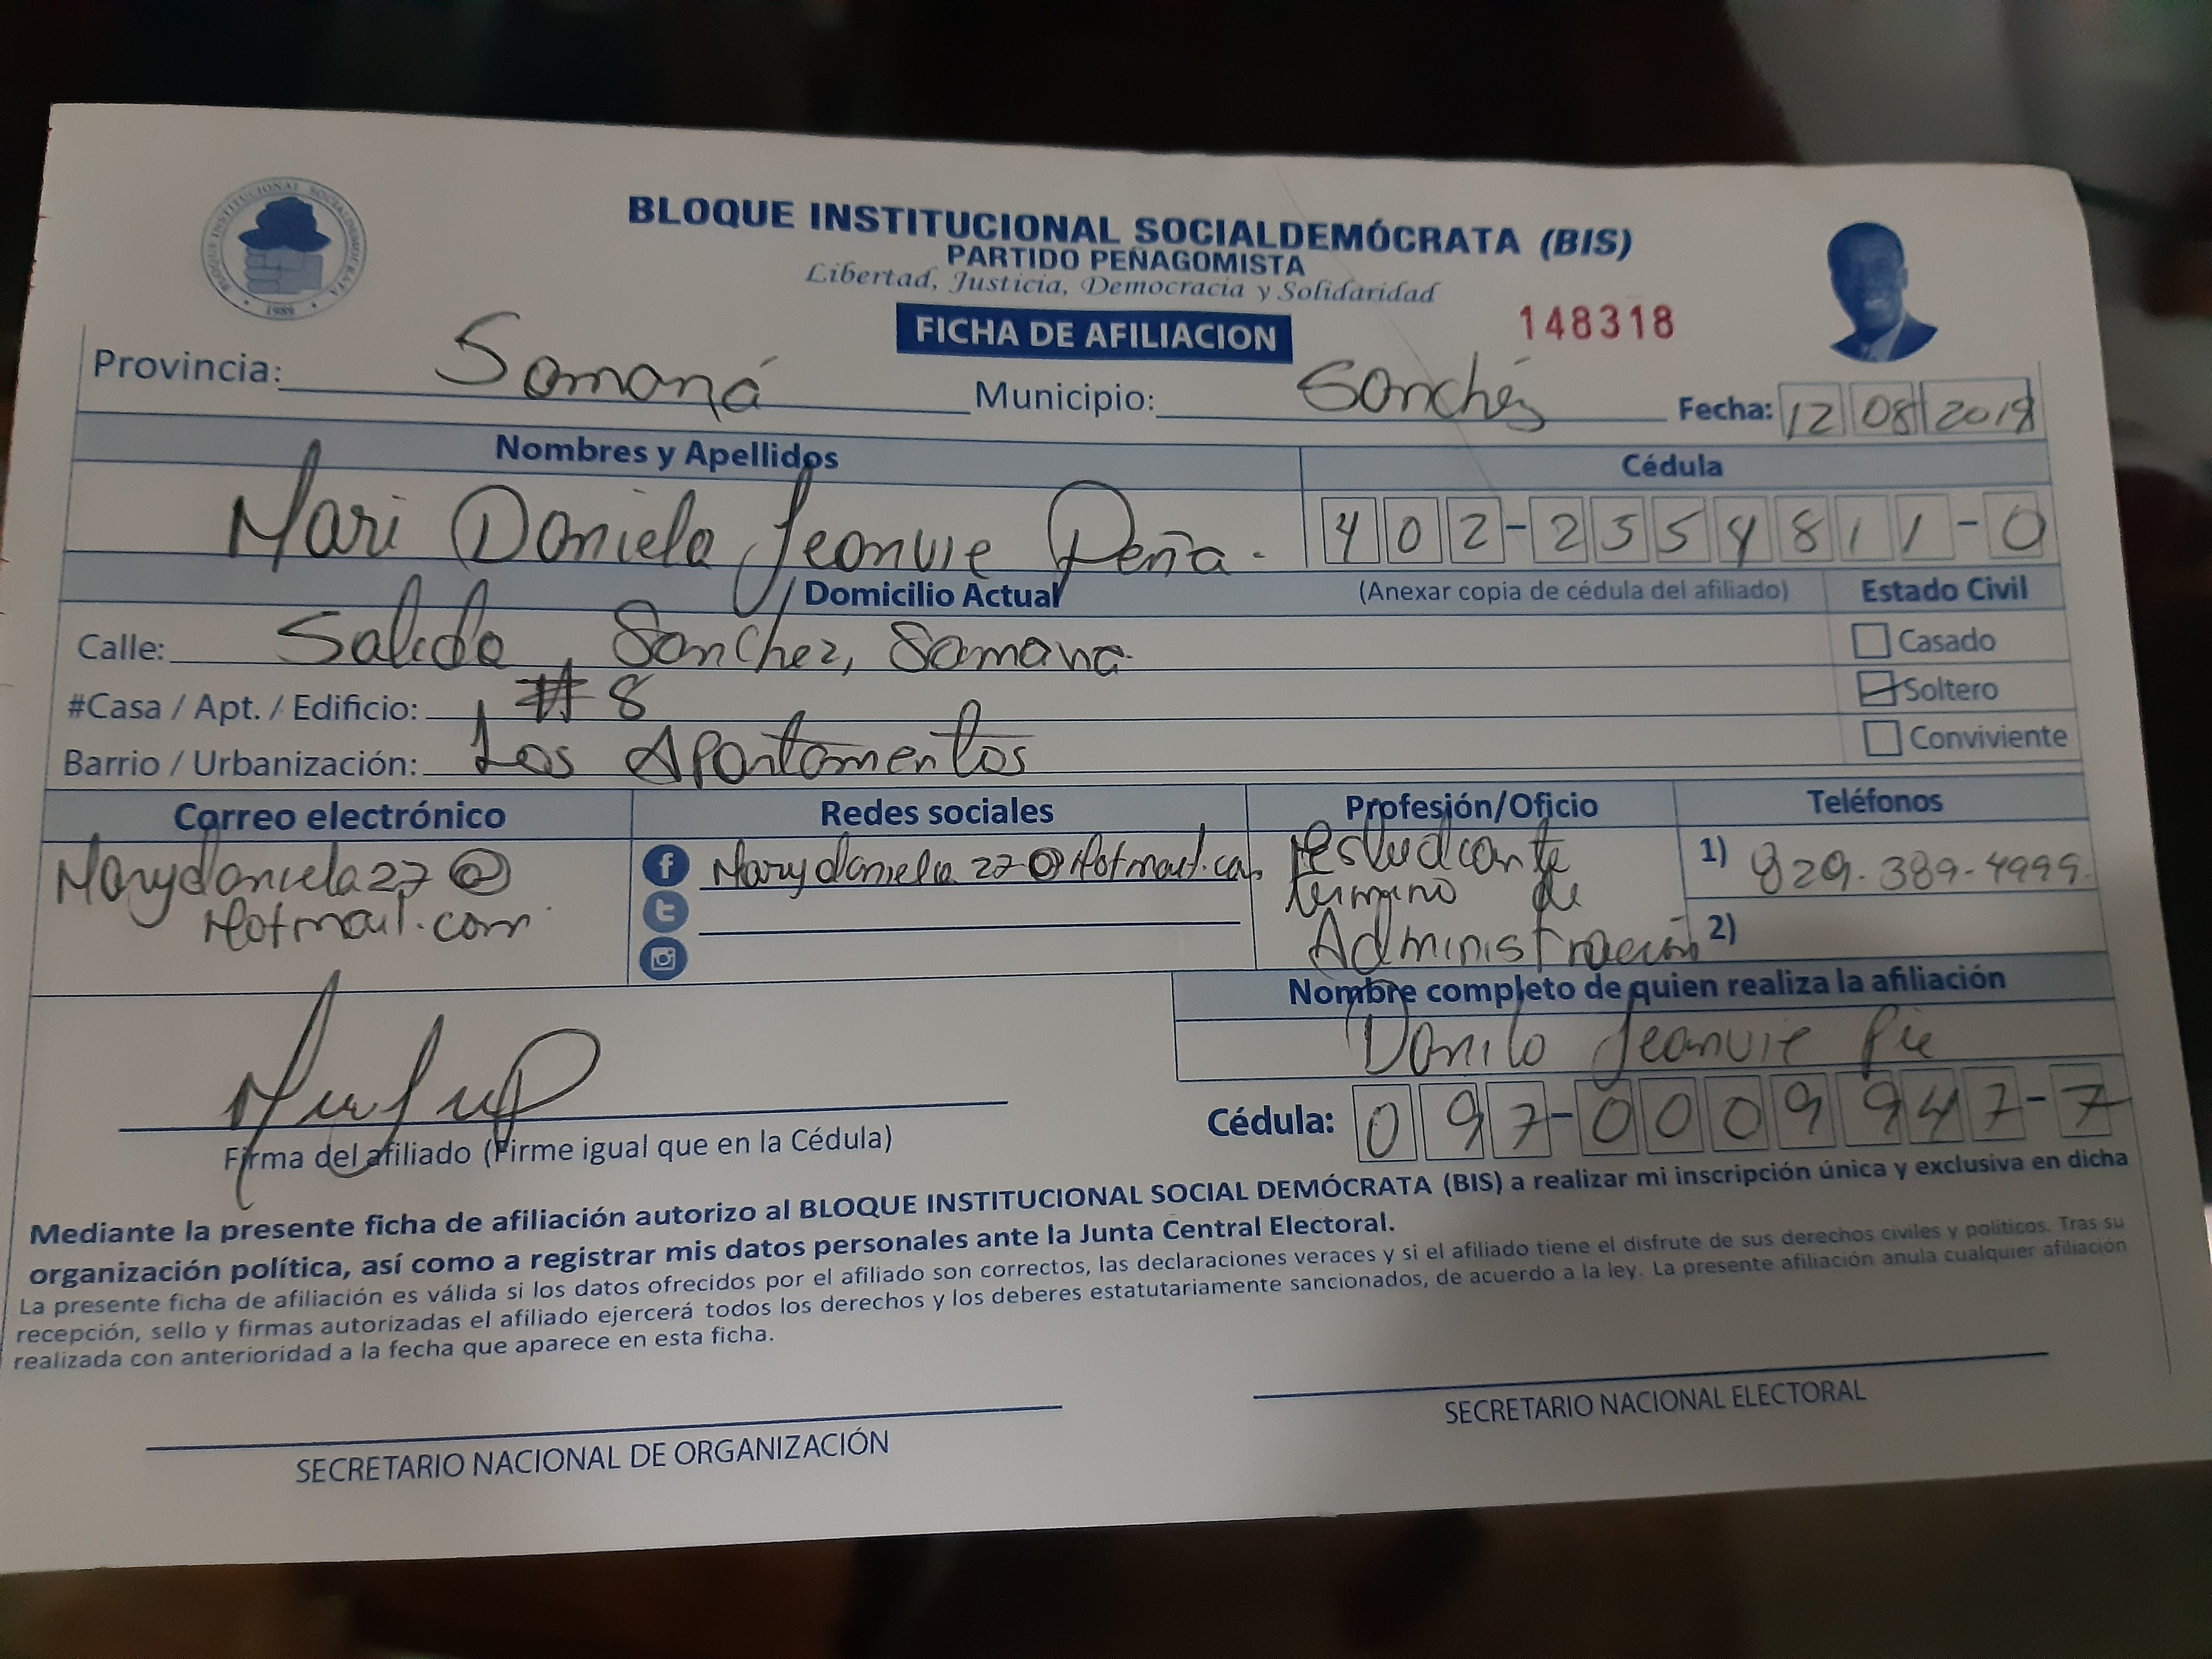 BLOQUE INSTITUCIONAL SOCIALDEMÓCRATA
1989
BLOQUE INSTITUCIONAL SOCIALDEMÓCRATA (BIS)
PARTIDO PEÑAGOMISTA
Libertad, Justicia, Democracia y Solidaridad
FICHA DE AFILIACION
148318
Provincia: Samaná Municipio: Sanchéz Fecha: 12 08 2019
Nombres y Apellidos Cédula
Mari Daniela Jeanvie Peña. 402-2554811-0
Domicilio Actual (Anexar copia de cédula del afiliado) Estado Civil
Calle: Salida, Sanchez, Samana. Casado
#Casa / Apt. / Edificio: #8 Soltero
Barrio / Urbanización: Los Apartamentos Conviviente
Correo electrónico Redes sociales Profesión/Oficio Teléfonos
Marydaniela27@ Marydaniela27@Hotmail.com Estudiante 1) 829.389-4999.
Hotmail.com termino de
Administración 2)
Nombre completo de quien realiza la afiliación
Danilo Jeanvie Pie
Cédula: 097-0009947-7
Firma del afiliado (Firme igual que en la Cédula)
Mediante la presente ficha de afiliación autorizo al BLOQUE INSTITUCIONAL SOCIAL DEMÓCRATA (BIS) a realizar mi inscripción única y exclusiva en dicha
organización política, así como a registrar mis datos personales ante la Junta Central Electoral.
La presente ficha de afiliación es válida si los datos ofrecidos por el afiliado son correctos, las declaraciones veraces y si el afiliado tiene el disfrute de sus derechos civiles y políticos. Tras su
recepción, sello y firmas autorizadas el afiliado ejercerá todos los derechos y los deberes estatutariamente sancionados, de acuerdo a la ley. La presente afiliación anula cualquier afiliación
realizada con anterioridad a la fecha que aparece en esta ficha.
SECRETARIO NACIONAL DE ORGANIZACIÓN
SECRETARIO NACIONAL ELECTORAL